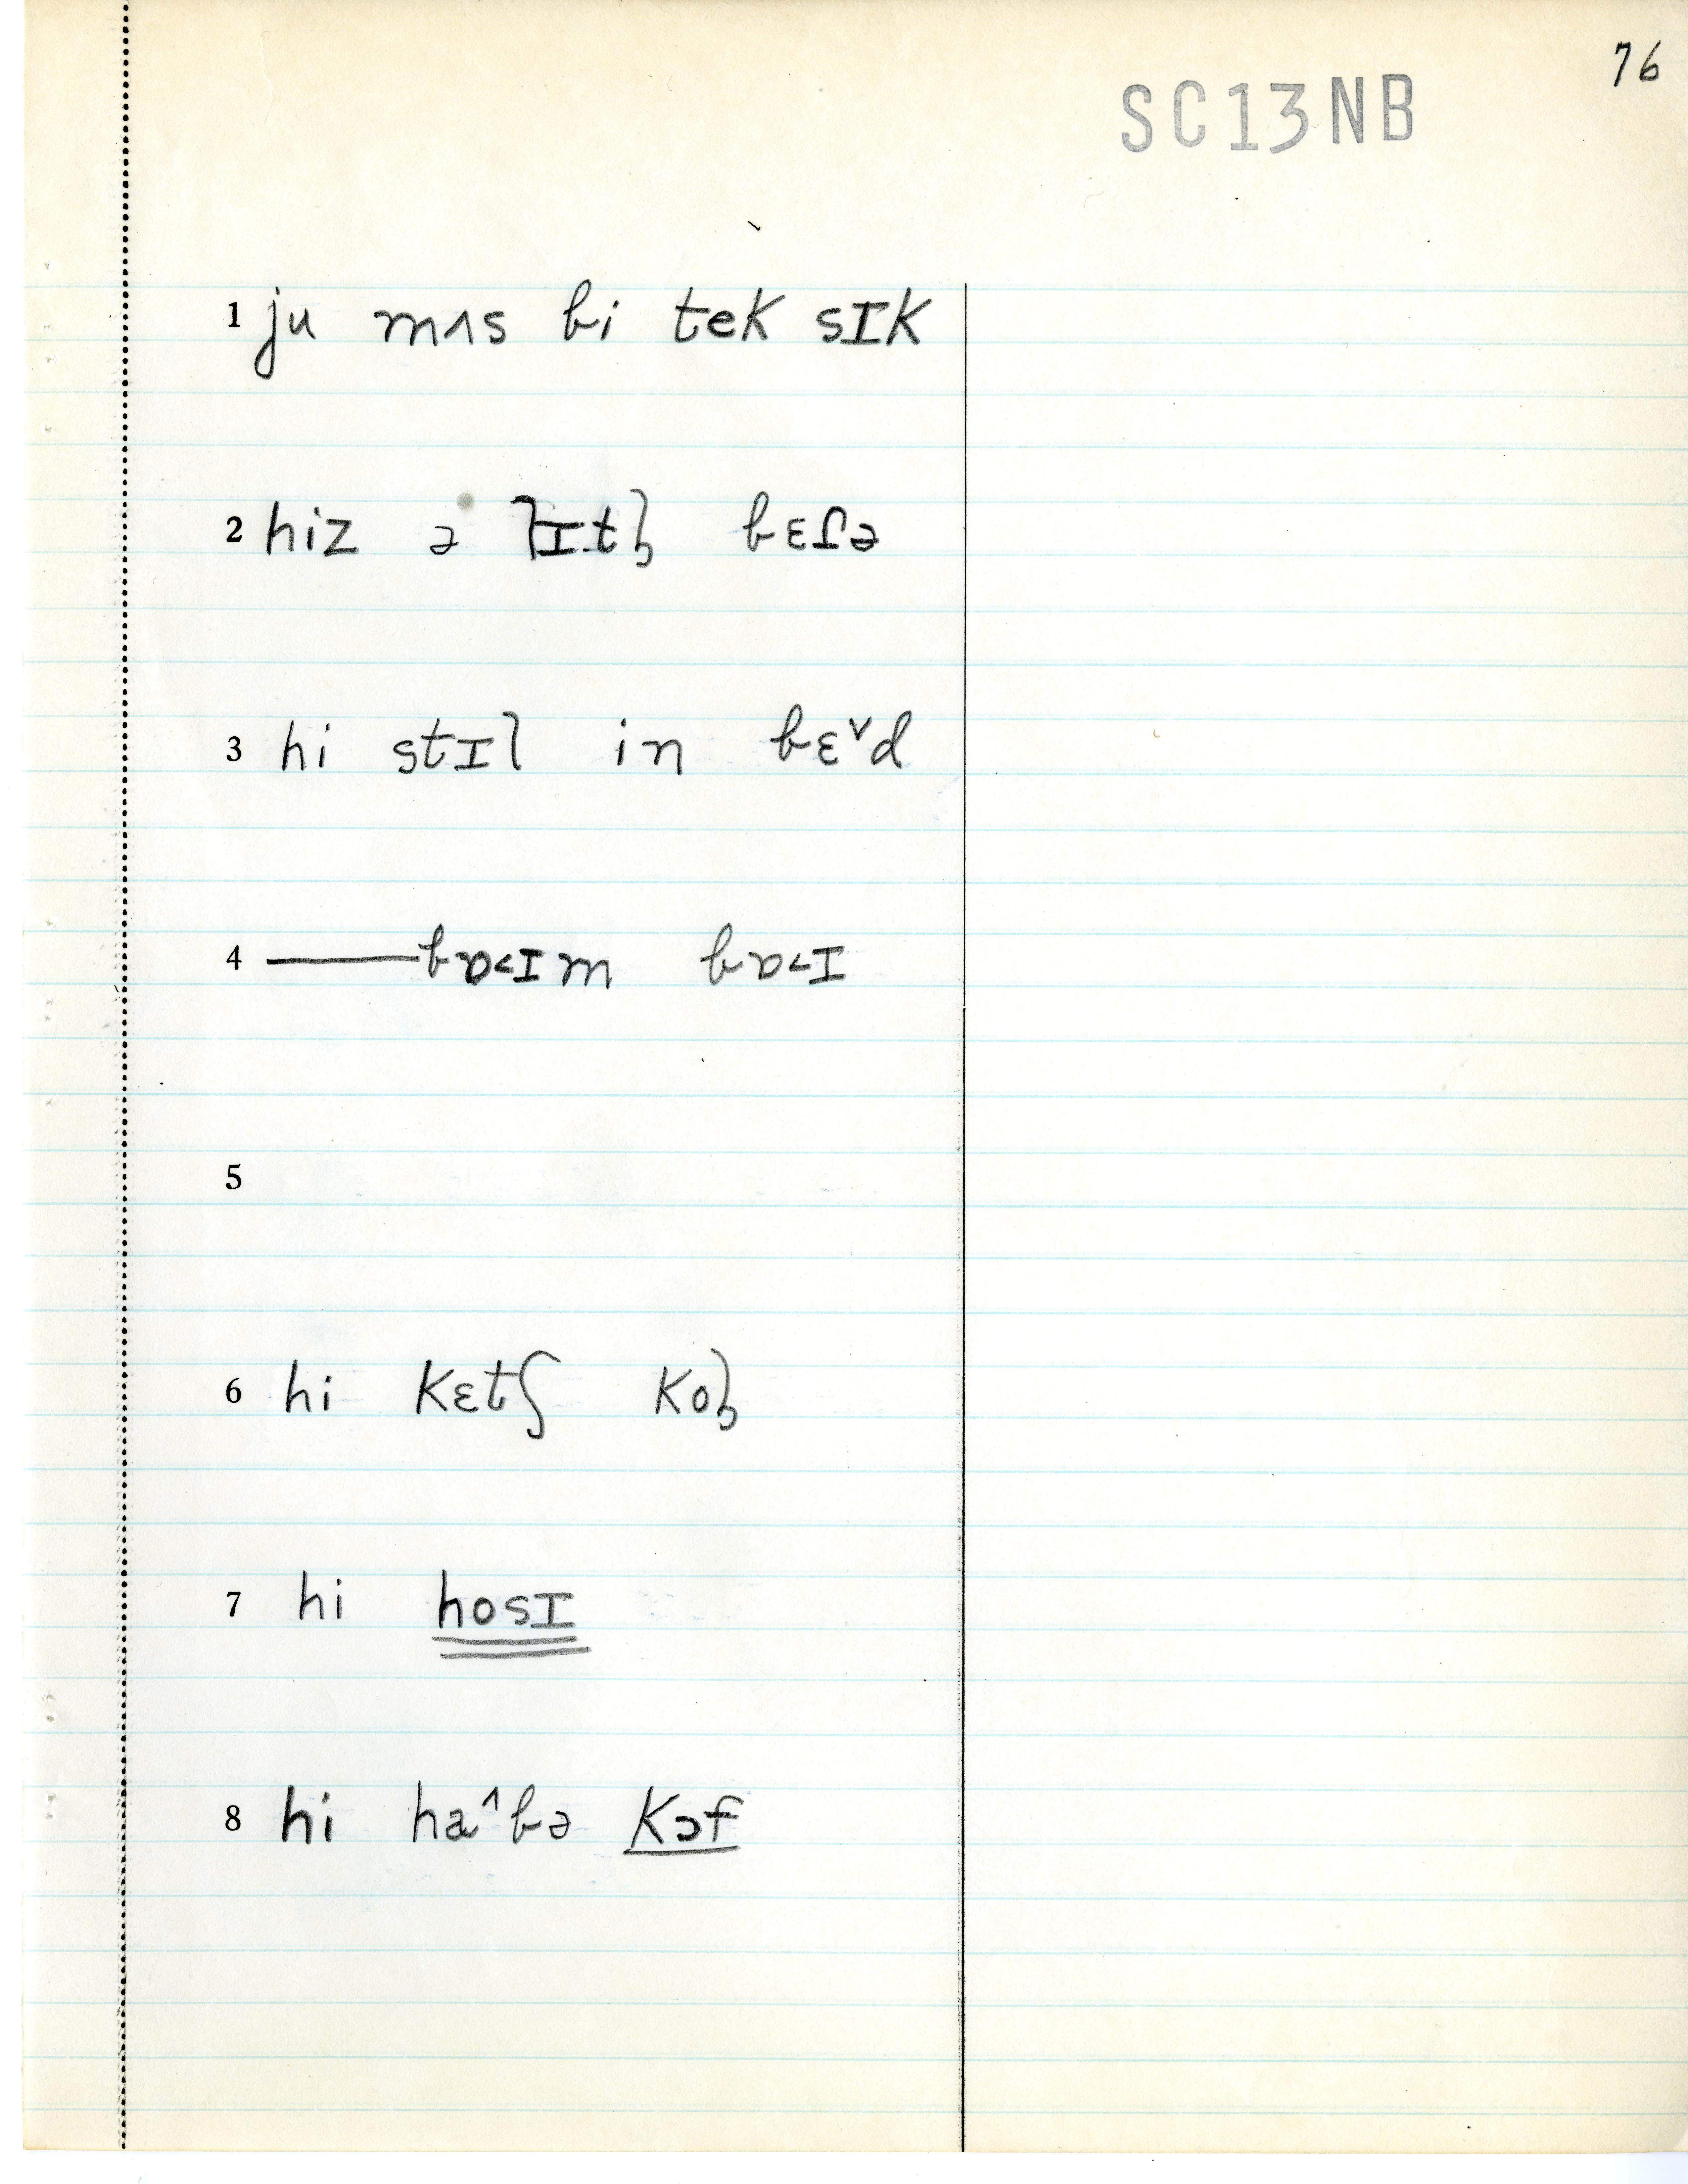 76
SC13NB
1 ju mʌs bi tek sɪk
2 hiz ə lɪtl̩ bɛɾə
3 hi stɪl in bɛ˅d
4 ——bɒ˂ɪm bɒ˂ɪ
5
6 hi kɛtʃ kol̩
7 hi hosɪ
8 hi ha˄bə kɔf